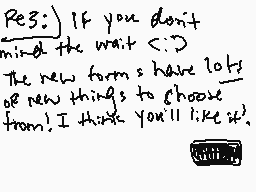 Re3:) If you don't
mind the wait <:)
The new forms have lots
of new things to choose
from! I think you'll like it!